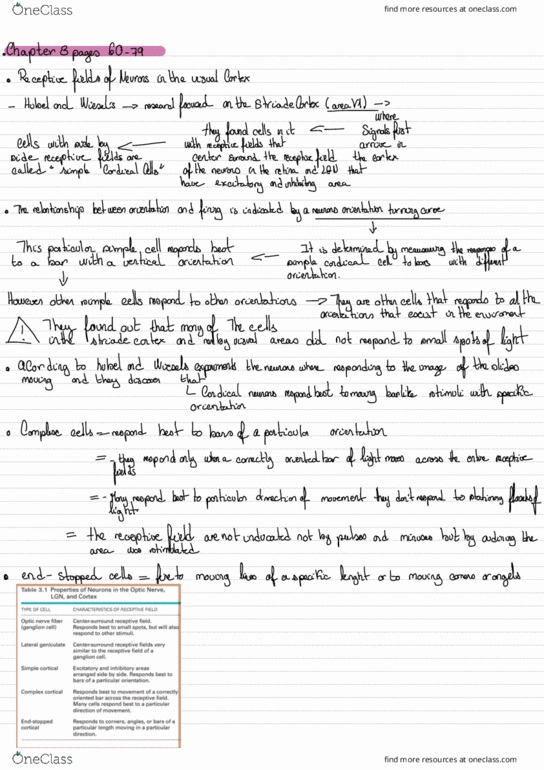 OneClass
find more resources at oneclass.com
Chapter 3 pages 60-79
Receptive fields of Neurons in the visual Cortex
- Hubel and Wiesel's → research focused on the Striade Cortex (area V1) →
where
they found cells in it ← Signals first
cells with side by ← with receptive fields that arrive in
side receptive fields are center surround the receptive field the cortex
called "simple Cordical Cells" of the neurons in the retina and LGN that
have excitatory and inhibiting area
The relationships between orientation and firing is indicated by a neurons orientation turning curve
This particular simple cell reponds best ← It is determined by measuring the responses of a
to a bar with a vertical orientation simple cordical cell to bars with different
orientation.
However other simple cells respond to other orientations → They are other cells that reponds to all the
orientations that exist in the enviroment
They found out that many of the cells
in the striade cortex and visual areas did not respond to small spots of light
According to Hubel and Wiesel's experiments the neurons where responding to the image of the slides
moving and they discover that
Cordical neurons respond best to moving barlike stimuli with specific
orientation
Complex cells = respond best to bars of a particular orientation
= they respond only when a correctly oriented bar of light moves across the entire receptive
fields
= - Many respond best to particular direction of movement they don't respond to stationary of
light
= the receptive field are not indicated not by pulses and minuses but by the
area was stimulated
end-stopped cells = fire to moving lines of a specific lenght or to moving corners or angels
Table 3.1 Properties of Neurons in the Optic Nerve,
LGN, and Cortex
TYPE OF CELL CHARACTERISTICS OF RECEPTIVE FIELD
Optic nerve fiber Center-surround receptive field.
(ganglion cell) Responds best to small spots, but will also
respond to other stimuli.
Lateral geniculate Center-surround receptive fields very
similar to the receptive field of a
ganglion cell.
Simple cortical Excitatory and inhibitory areas
arranged side by side. Responds best to
bars of a particular orientation.
Complex cortical Responds best to movement of a correctly
oriented bar across the receptive field.
Many cells respond best to a particular
direction of movement.
End-stopped Responds to corners, angles, or bars of a
cortical particular length moving in a particular
direction.
OneClass
find more resources at oneclass.com